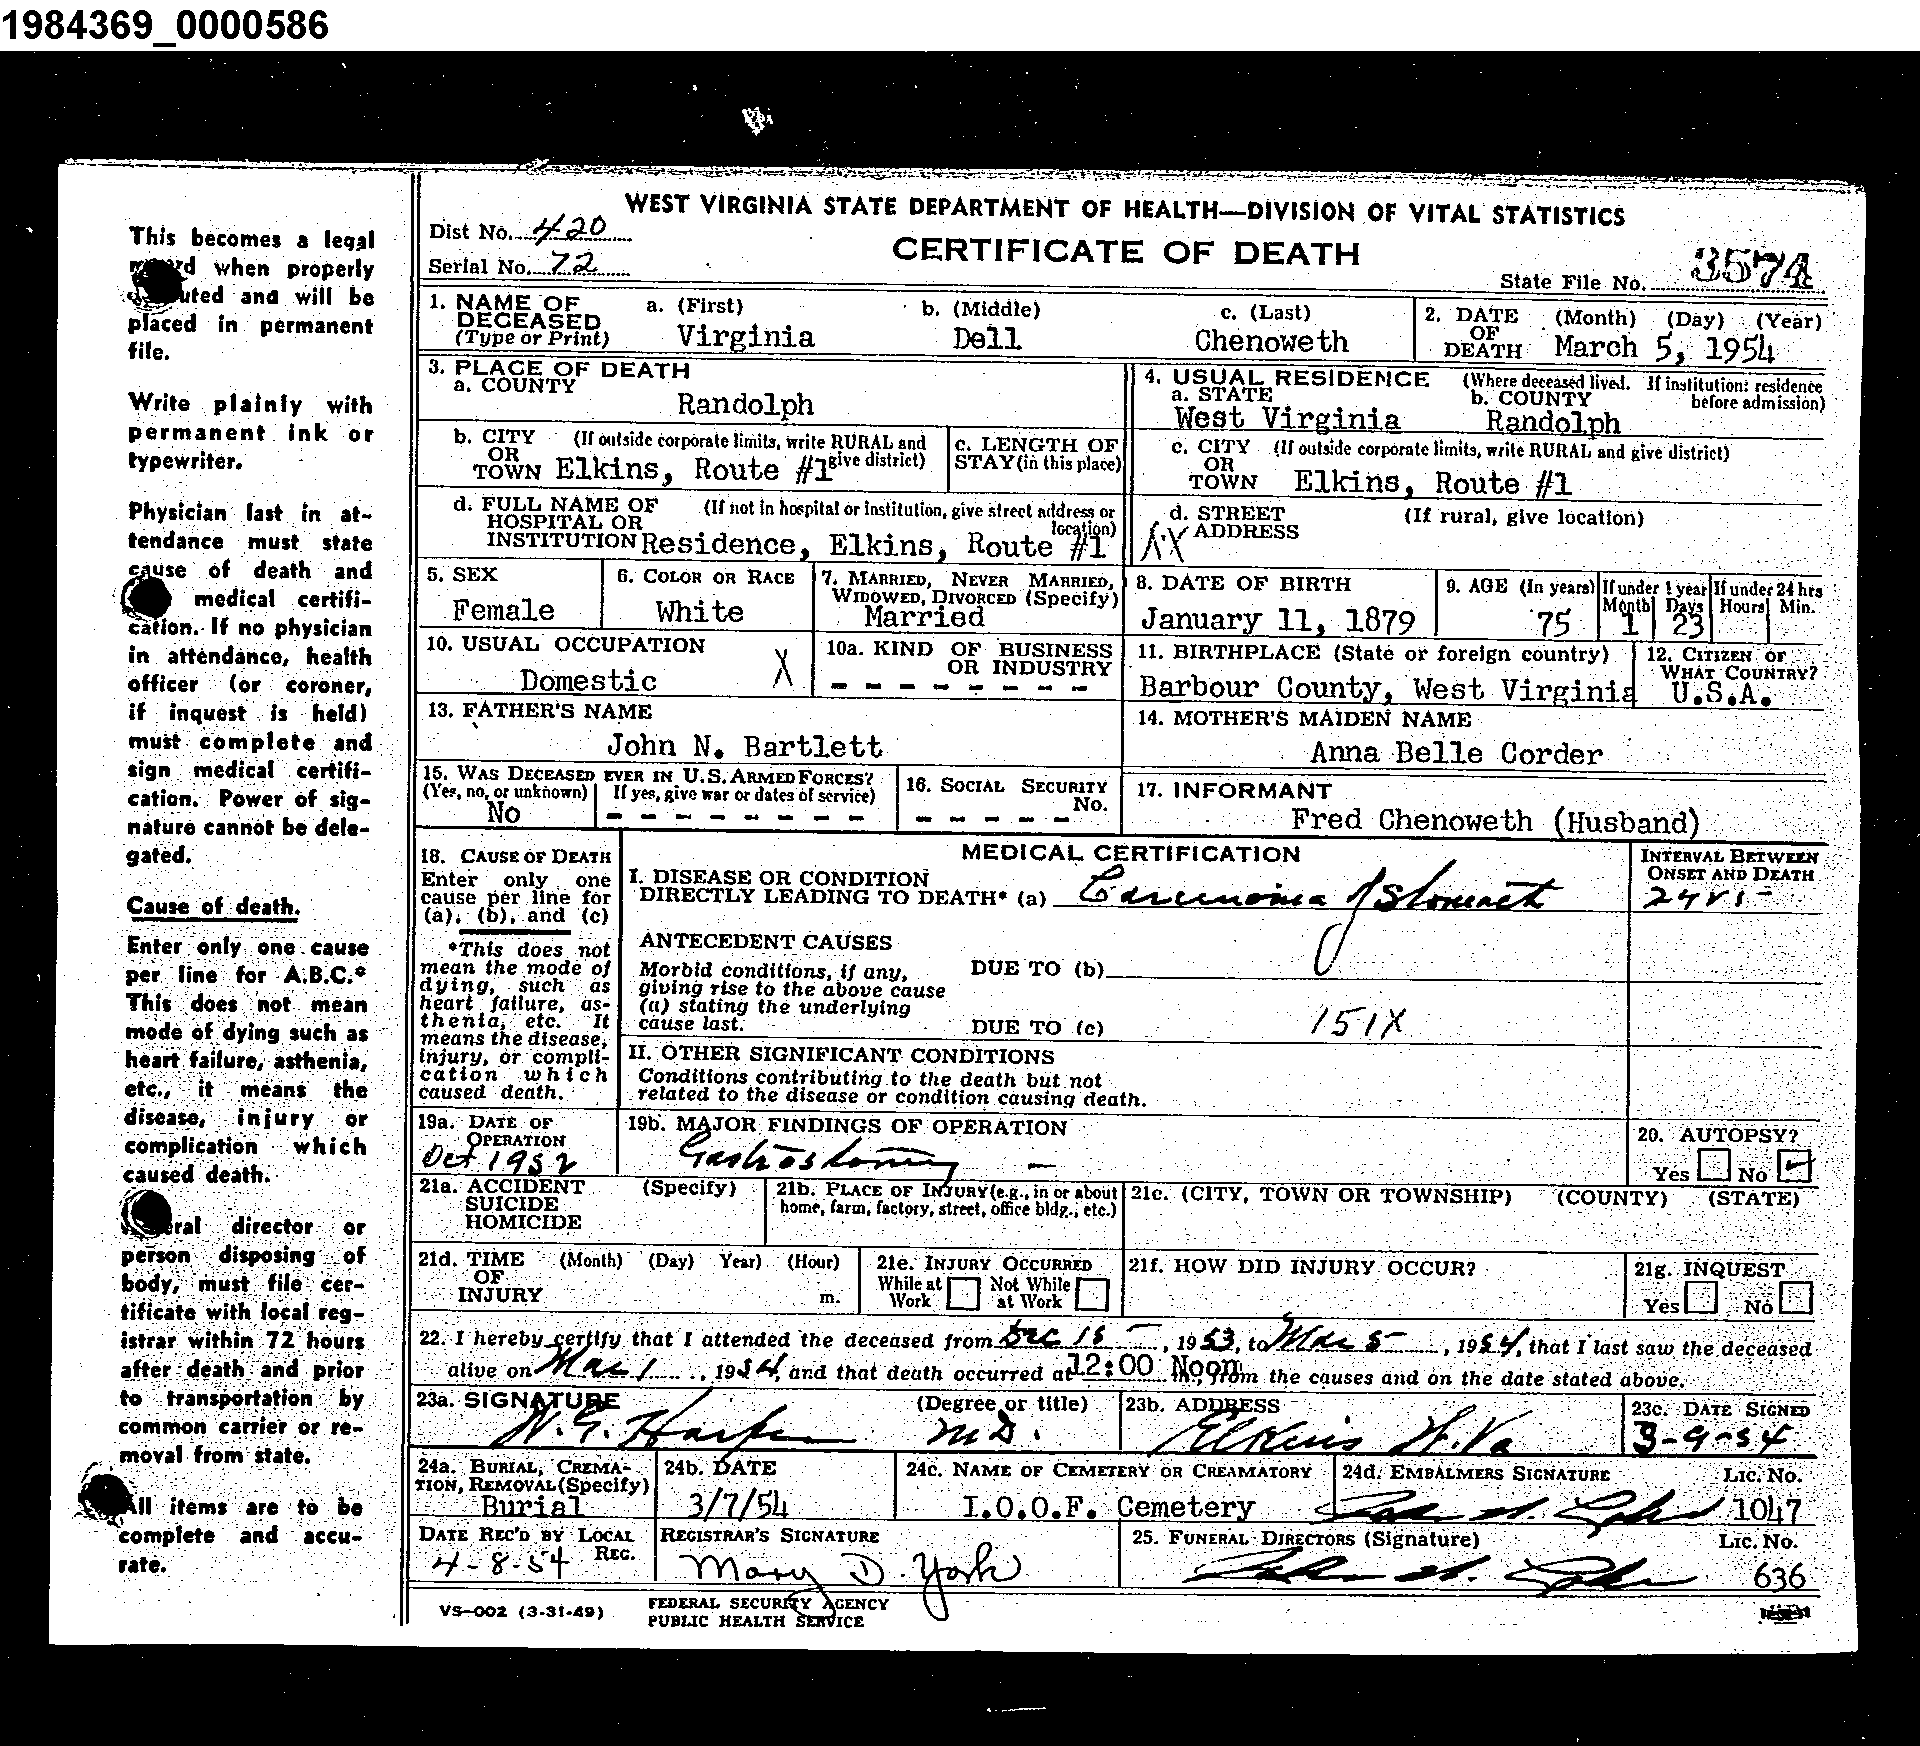 1984369_0000586
WEST VIRGINIA STATE DEPARTMENT OF HEALTH—DIVISION OF VITAL STATISTICS
Dist No. 420
CERTIFICATE OF DEATH
Serial No. 72
State File No. 3574
1. NAME OF DECEASED (Type or Print) a. (First) Virginia b. (Middle) Dell c. (Last) Chenoweth
2. DATE OF DEATH (Month) (Day) (Year) March 5, 1954
3. PLACE OF DEATH
a. COUNTY Randolph
4. USUAL RESIDENCE (Where deceased lived. If institution: residence before admission)
a. STATE West Virginia b. COUNTY Randolph
b. CITY OR TOWN (If outside corporate limits, write RURAL and give district) Elkins, Route #1
c. LENGTH OF STAY (in this place)
c. CITY OR TOWN (If outside corporate limits, write RURAL and give district) Elkins, Route #1
d. FULL NAME OF HOSPITAL OR INSTITUTION (If not in hospital or institution, give street address or location) Residence, Elkins, Route #1
d. STREET ADDRESS (If rural, give location) XX
5. SEX Female
6. COLOR OR RACE White
7. MARRIED, NEVER MARRIED, WIDOWED, DIVORCED (Specify) Married
8. DATE OF BIRTH January 11, 1879
9. AGE (In years) 75 If under 1 year Month 1 Days 23 If under 24 hrs Hours Min.
10. USUAL OCCUPATION Domestic X
10a. KIND OF BUSINESS OR INDUSTRY - - - - - - - -
11. BIRTHPLACE (State or foreign country) Barbour County, West Virginia
12. CITIZEN OF WHAT COUNTRY? U.S.A.
13. FATHER'S NAME John N. Bartlett
14. MOTHER'S MAIDEN NAME Anna Belle Corder
15. WAS DECEASED EVER IN U.S. ARMED FORCES? (Yes, no, or unknown) No If yes, give war or dates of service) - - - - - - - -
16. SOCIAL SECURITY No. - - - - -
17. INFORMANT Fred Chenoweth (Husband)
MEDICAL CERTIFICATION
INTERVAL BETWEEN ONSET AND DEATH
18. CAUSE OF DEATH
Enter only one cause per line for (a), (b), and (c)
*This does not mean the mode of dying, such as heart failure, asthenia, etc. It means the disease, injury, or complication which caused death.
I. DISEASE OR CONDITION DIRECTLY LEADING TO DEATH* (a) Carcinoma of Stomach 2 yrs
ANTECEDENT CAUSES
Morbid conditions, if any, giving rise to the above cause (a) stating the underlying cause last.
DUE TO (b)
DUE TO (c) 151X
II. OTHER SIGNIFICANT CONDITIONS
Conditions contributing to the death but not related to the disease or condition causing death.
19a. DATE OF OPERATION Oct 1952
19b. MAJOR FINDINGS OF OPERATION Gastrostomy —
20. AUTOPSY? Yes No ✓
21a. ACCIDENT SUICIDE HOMICIDE (Specify)
21b. PLACE OF INJURY (e.g., in or about home, farm, factory, street, office bldg., etc.)
21c. (CITY, TOWN OR TOWNSHIP) (COUNTY) (STATE)
21d. TIME OF INJURY (Month) (Day) Year) (Hour) m.
21e. INJURY OCCURRED While at Work Not While at Work
21f. HOW DID INJURY OCCUR?
21g. INQUEST Yes No
22. I hereby certify that I attended the deceased from Dec 15, 1953, to Mar 5, 1954, that I last saw the deceased
alive on Mar 1, 1954, and that death occurred at 12:00 Noon m., from the causes and on the date stated above.
23a. SIGNATURE (Degree or title) M.D.
23b. ADDRESS Elkins W. Va
23c. DATE SIGNED 3-9-54
24a. BURIAL, CREMATION, REMOVAL (Specify) Burial
24b. DATE 3/7/54
24c. NAME OF CEMETERY OR CREAMATORY I.O.O.F. Cemetery
24d. EMBALMERS SIGNATURE Lic. No. 1047
DATE REC'D BY LOCAL REG. 4-8-54
REGISTRAR'S SIGNATURE Mary D. York
25. FUNERAL DIRECTORS (Signature) Lic. No. 636
VS—002 (3-31-49)
FEDERAL SECURITY AGENCY
PUBLIC HEALTH SERVICE
This becomes a legal
when properly
and will be
placed in permanent
file.
Write plainly with
permanent ink or
typewriter.
Physician last in at-
tendance must state
cause of death and
medical certifi-
cation. If no physician
in attendance, health
officer (or coroner,
if inquest is held)
must complete and
sign medical certifi-
cation. Power of sig-
nature cannot be dele-
gated.
Cause of death.
Enter only one cause
per line for A.B.C.*
This does not mean
mode of dying such as
heart failure, asthenia,
etc., it means the
disease, injury or
complication which
caused death.
director or
person disposing of
body, must file cer-
tificate with local reg-
istrar within 72 hours
after death and prior
to transportation by
common carrier or re-
moval from state.
All items are to be
complete and accu-
rate.